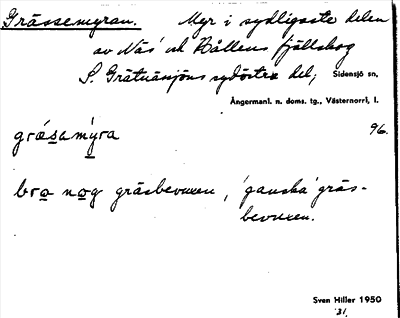 Grässemyran. Myr i sydligaste delen
av Näs' och Bållens fjällskog
S. Gråtanåns sydöstra del; Sidensjö sn,
Ångermanl. n. doms. tg., Västernorrl. l.
96.
gräsamýra
bro nog gräsbevuxen, 'ganska gräs-
bevuxen.
Sven Hiller 1950
'31.